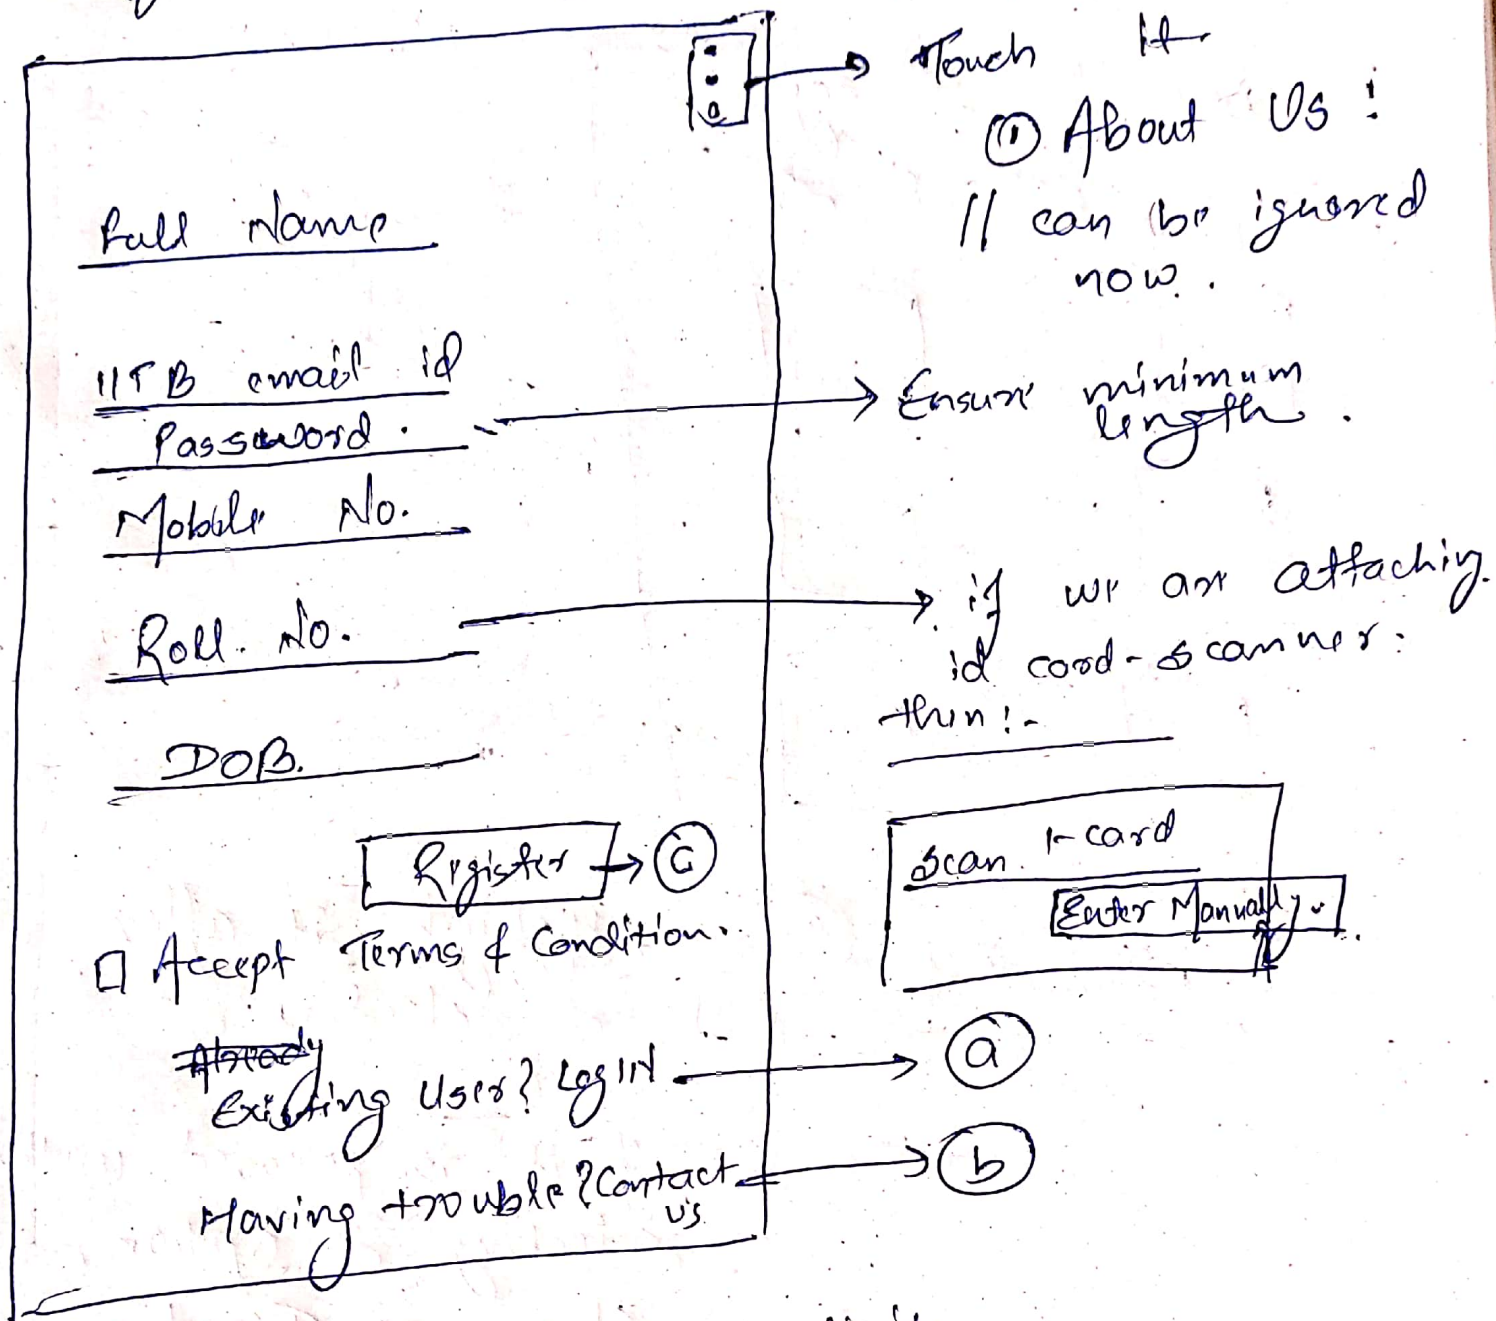 Touch it
① About Us !
// can be ignored
now.
Full Name
IITB email id
Ensure minimum
length.
Password.
Mobile No.
if we are attaching
Roll. No.
id card-scanner.
then :-
DOB.
Scan I-card
Register
C
Enter Manually.
Accept Terms & Condition.
Already
Existing User? LogIN
a
Having trouble? Contact
us
b